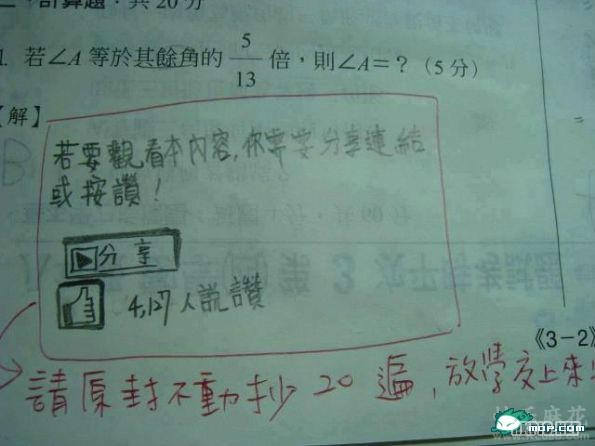 二、計算題：共20分
1. 若∠A 等於其餘角的 5/13 倍，則∠A=？(5分)
【解】
若要觀看本內容,你需要分享連結
或按讚！
分享
4,127人說讚
《3-2》
請原封不動抄20遍,放學交上來
mop.com